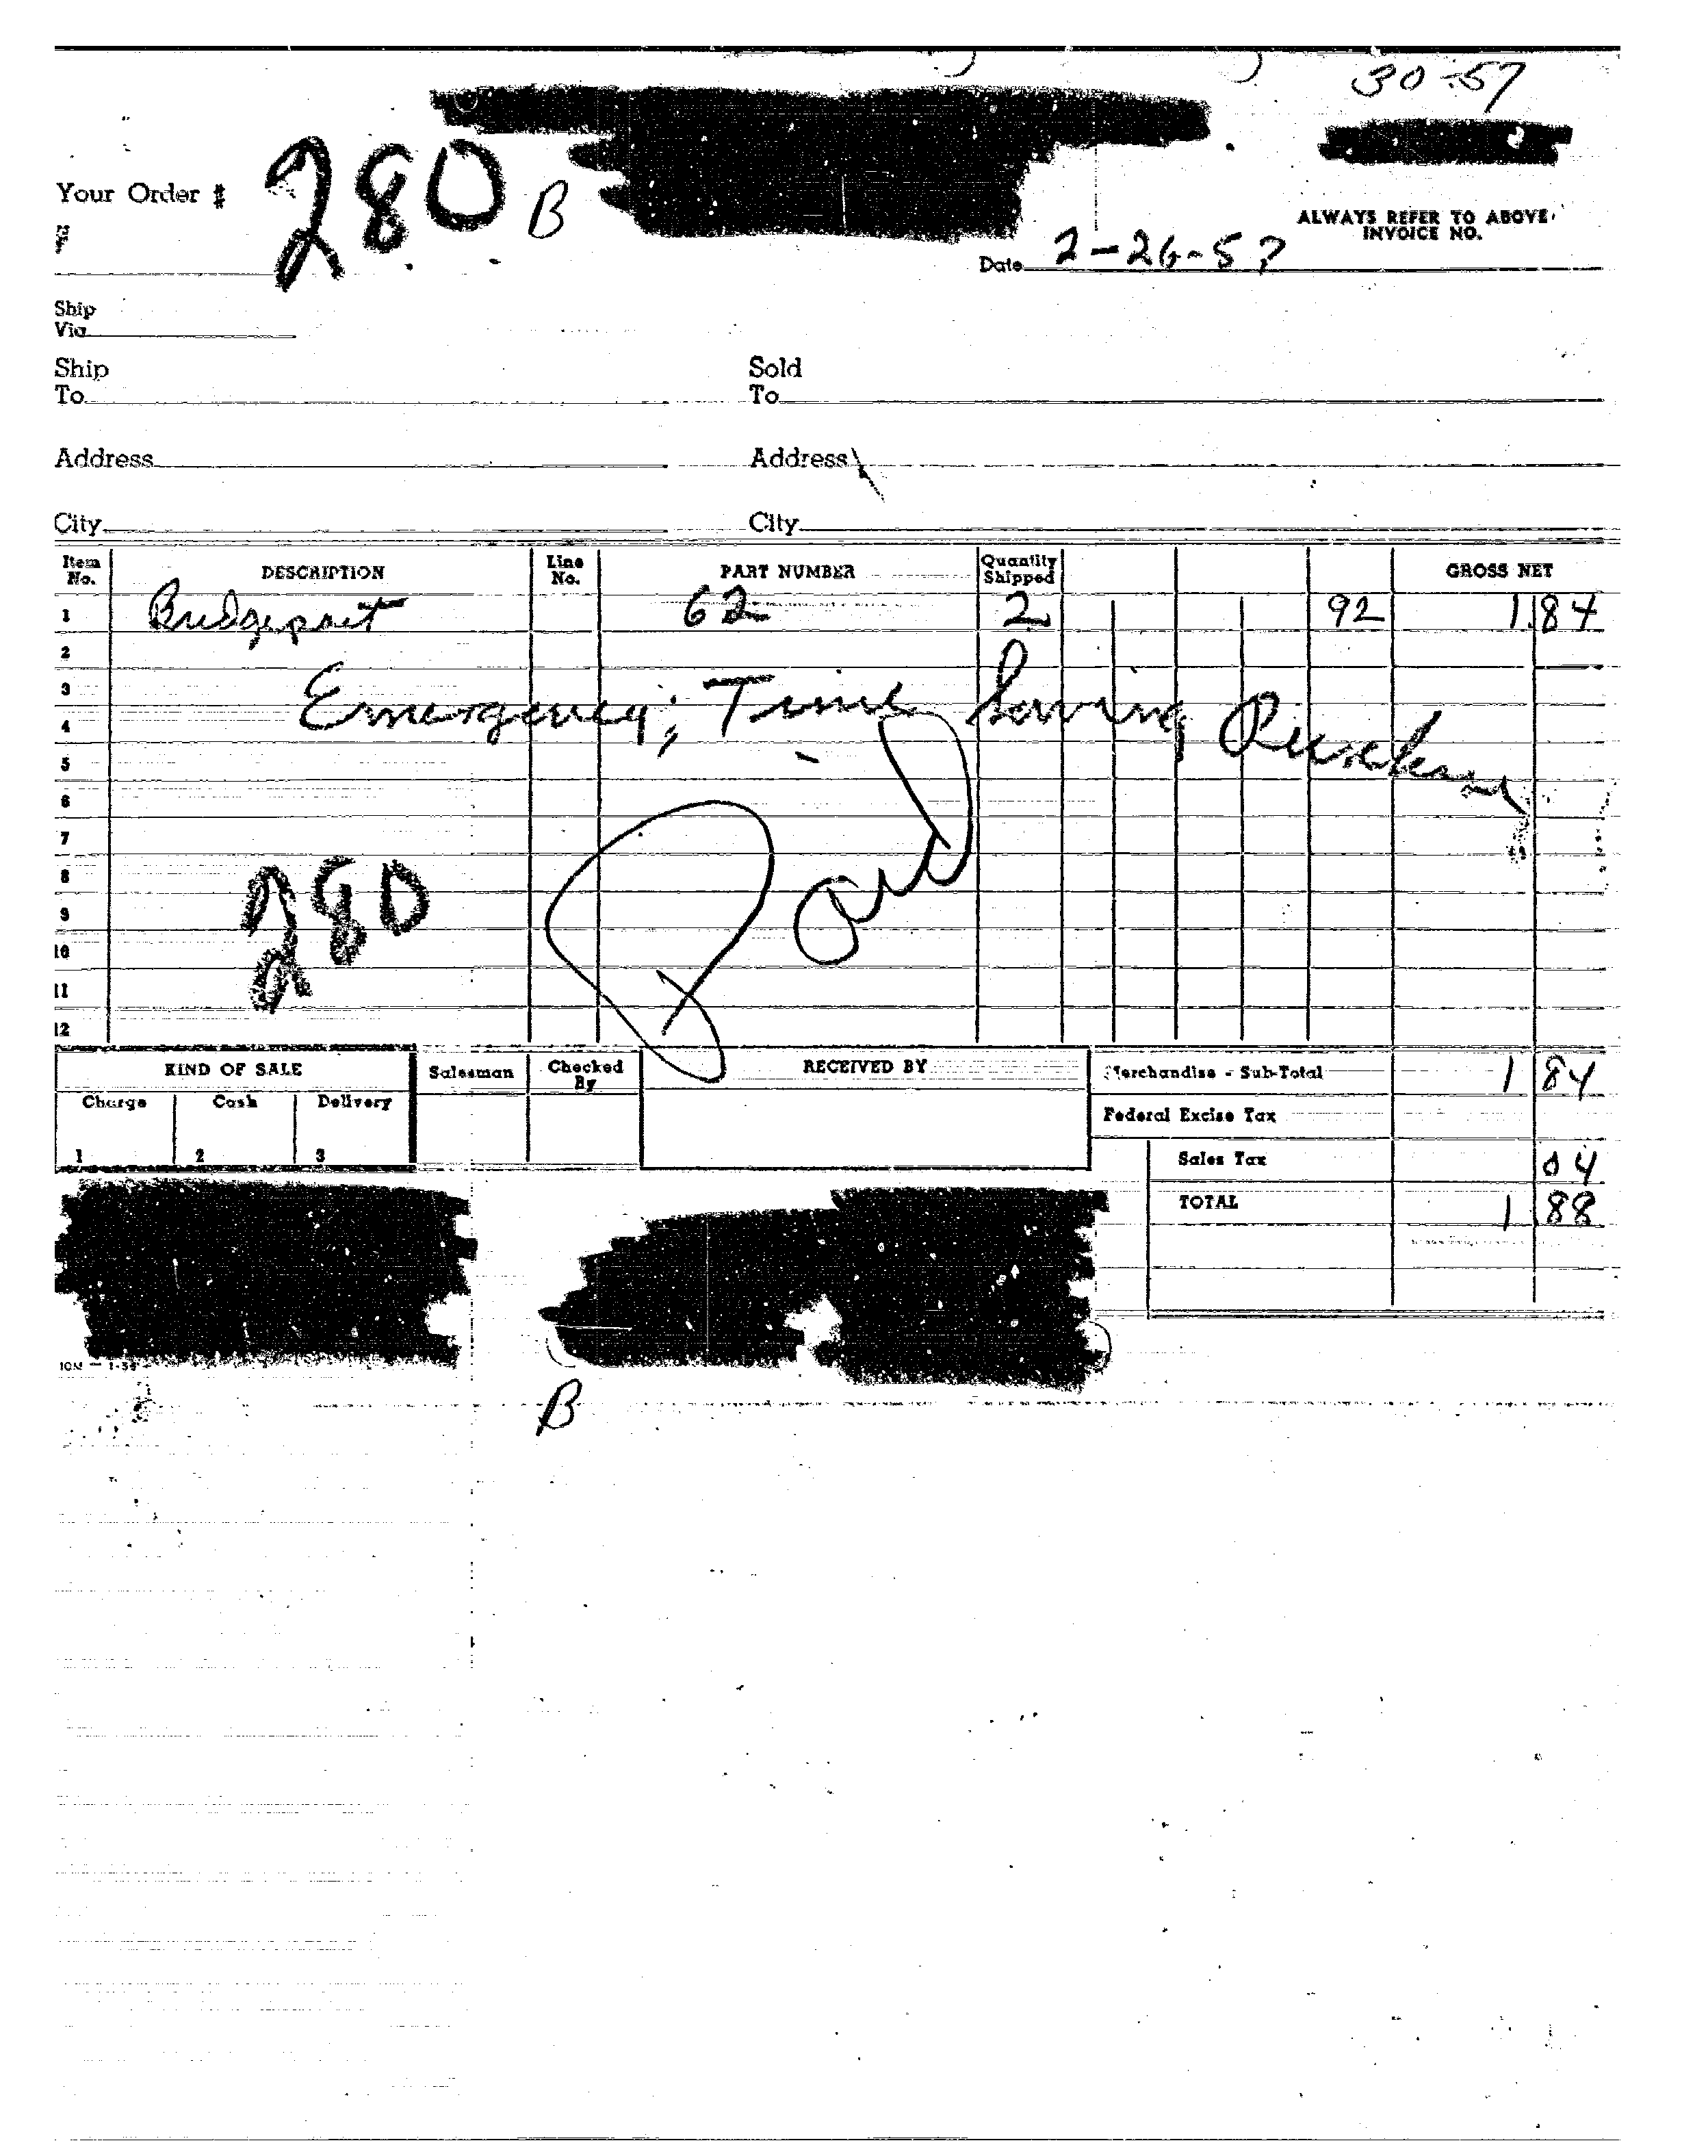 30-57
Your Order # 280 B
#
ALWAYS REFER TO ABOVE
INVOICE NO.
Date 2-26-57
Ship
Via
Ship
To
Sold
To
Address
Address
City
City
Item No. DESCRIPTION Line No. PART NUMBER Quantity Shipped GROSS NET
1 Bridgeport 62 2 92 1.84
2
3 Emergency; Time Saving Purchase
4
5
6
7
8 280
9 Paid
10
11
12
KIND OF SALE Salesman Checked By RECEIVED BY Merchandise - Sub-Total 1 84
Charge Cash Delivery Federal Excise Tax
1 2 3 Sales Tax 04
TOTAL 1 88
B